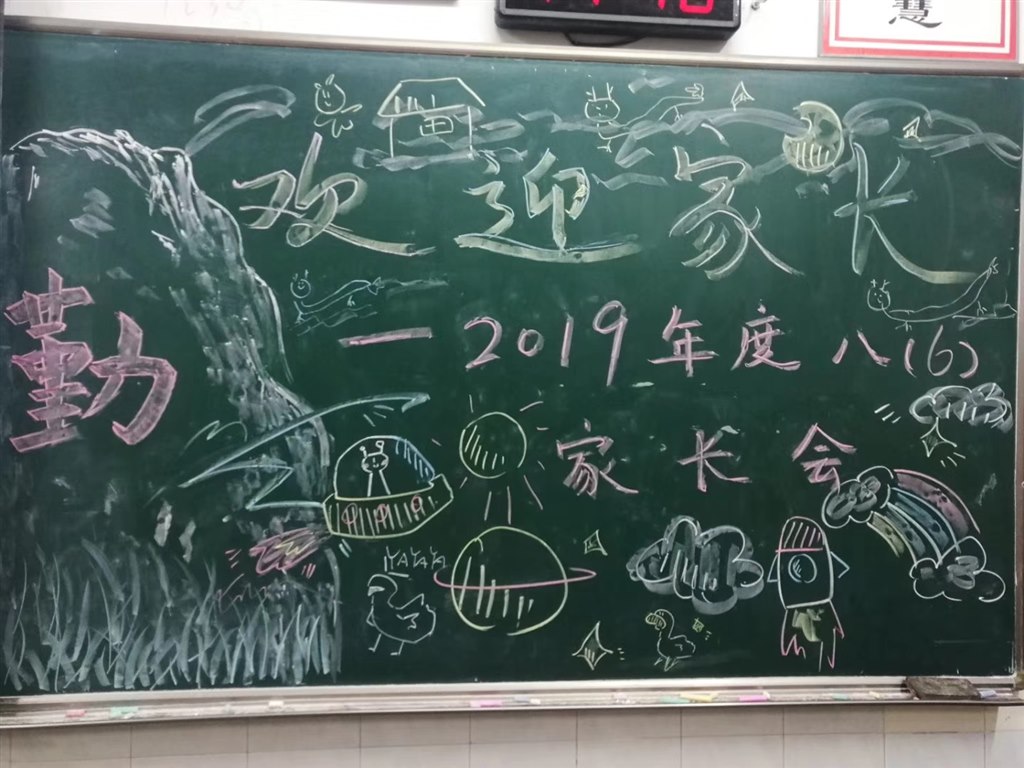 慧
欢迎家长
勤
一2019年度八(6)
家长会
YAYAYA